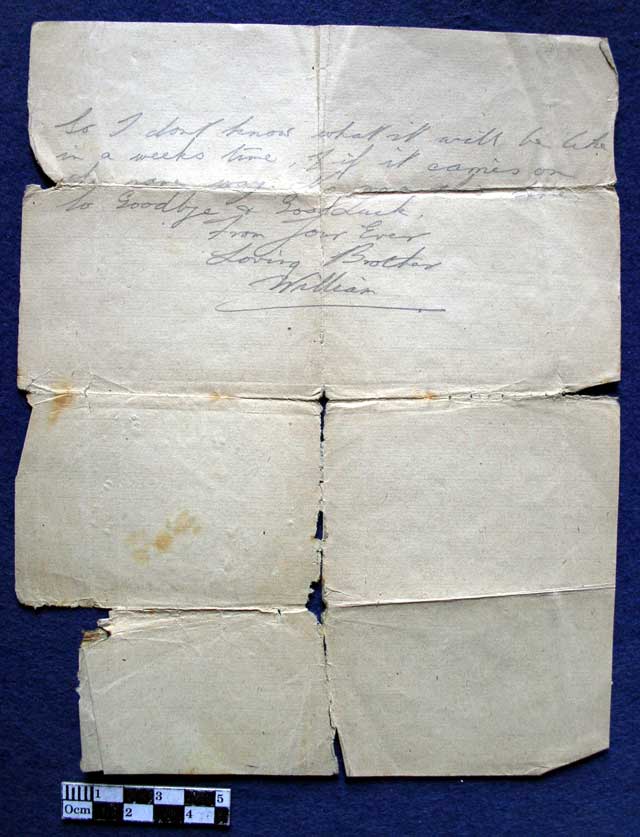 So I dont know what it will be like
in a weeks time, if it carries on
way
So Goodbye & Good Luck,
From Your Ever
Loving Brother
William
1 3 5
0cm 2 4